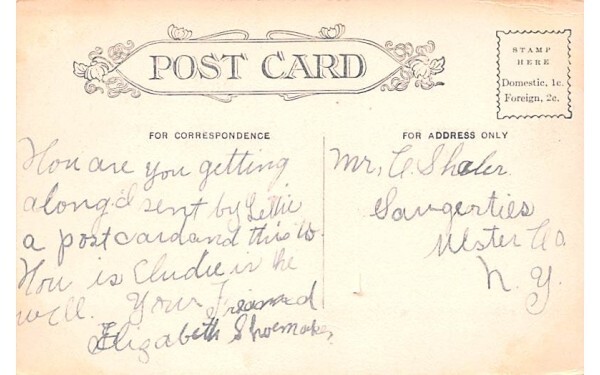 POST CARD
STAMP
HERE
Domestic, 1c.
Foreign, 2c.
FOR CORRESPONDENCE
How are you getting
along I sent by Lettie
a postcard and this to.
How is Cludie is he
well. Your Frieand
Elizabeth Shoemaker
FOR ADDRESS ONLY
Mr, C. Shaler
Saugerties
Ulster Co
N. Y.